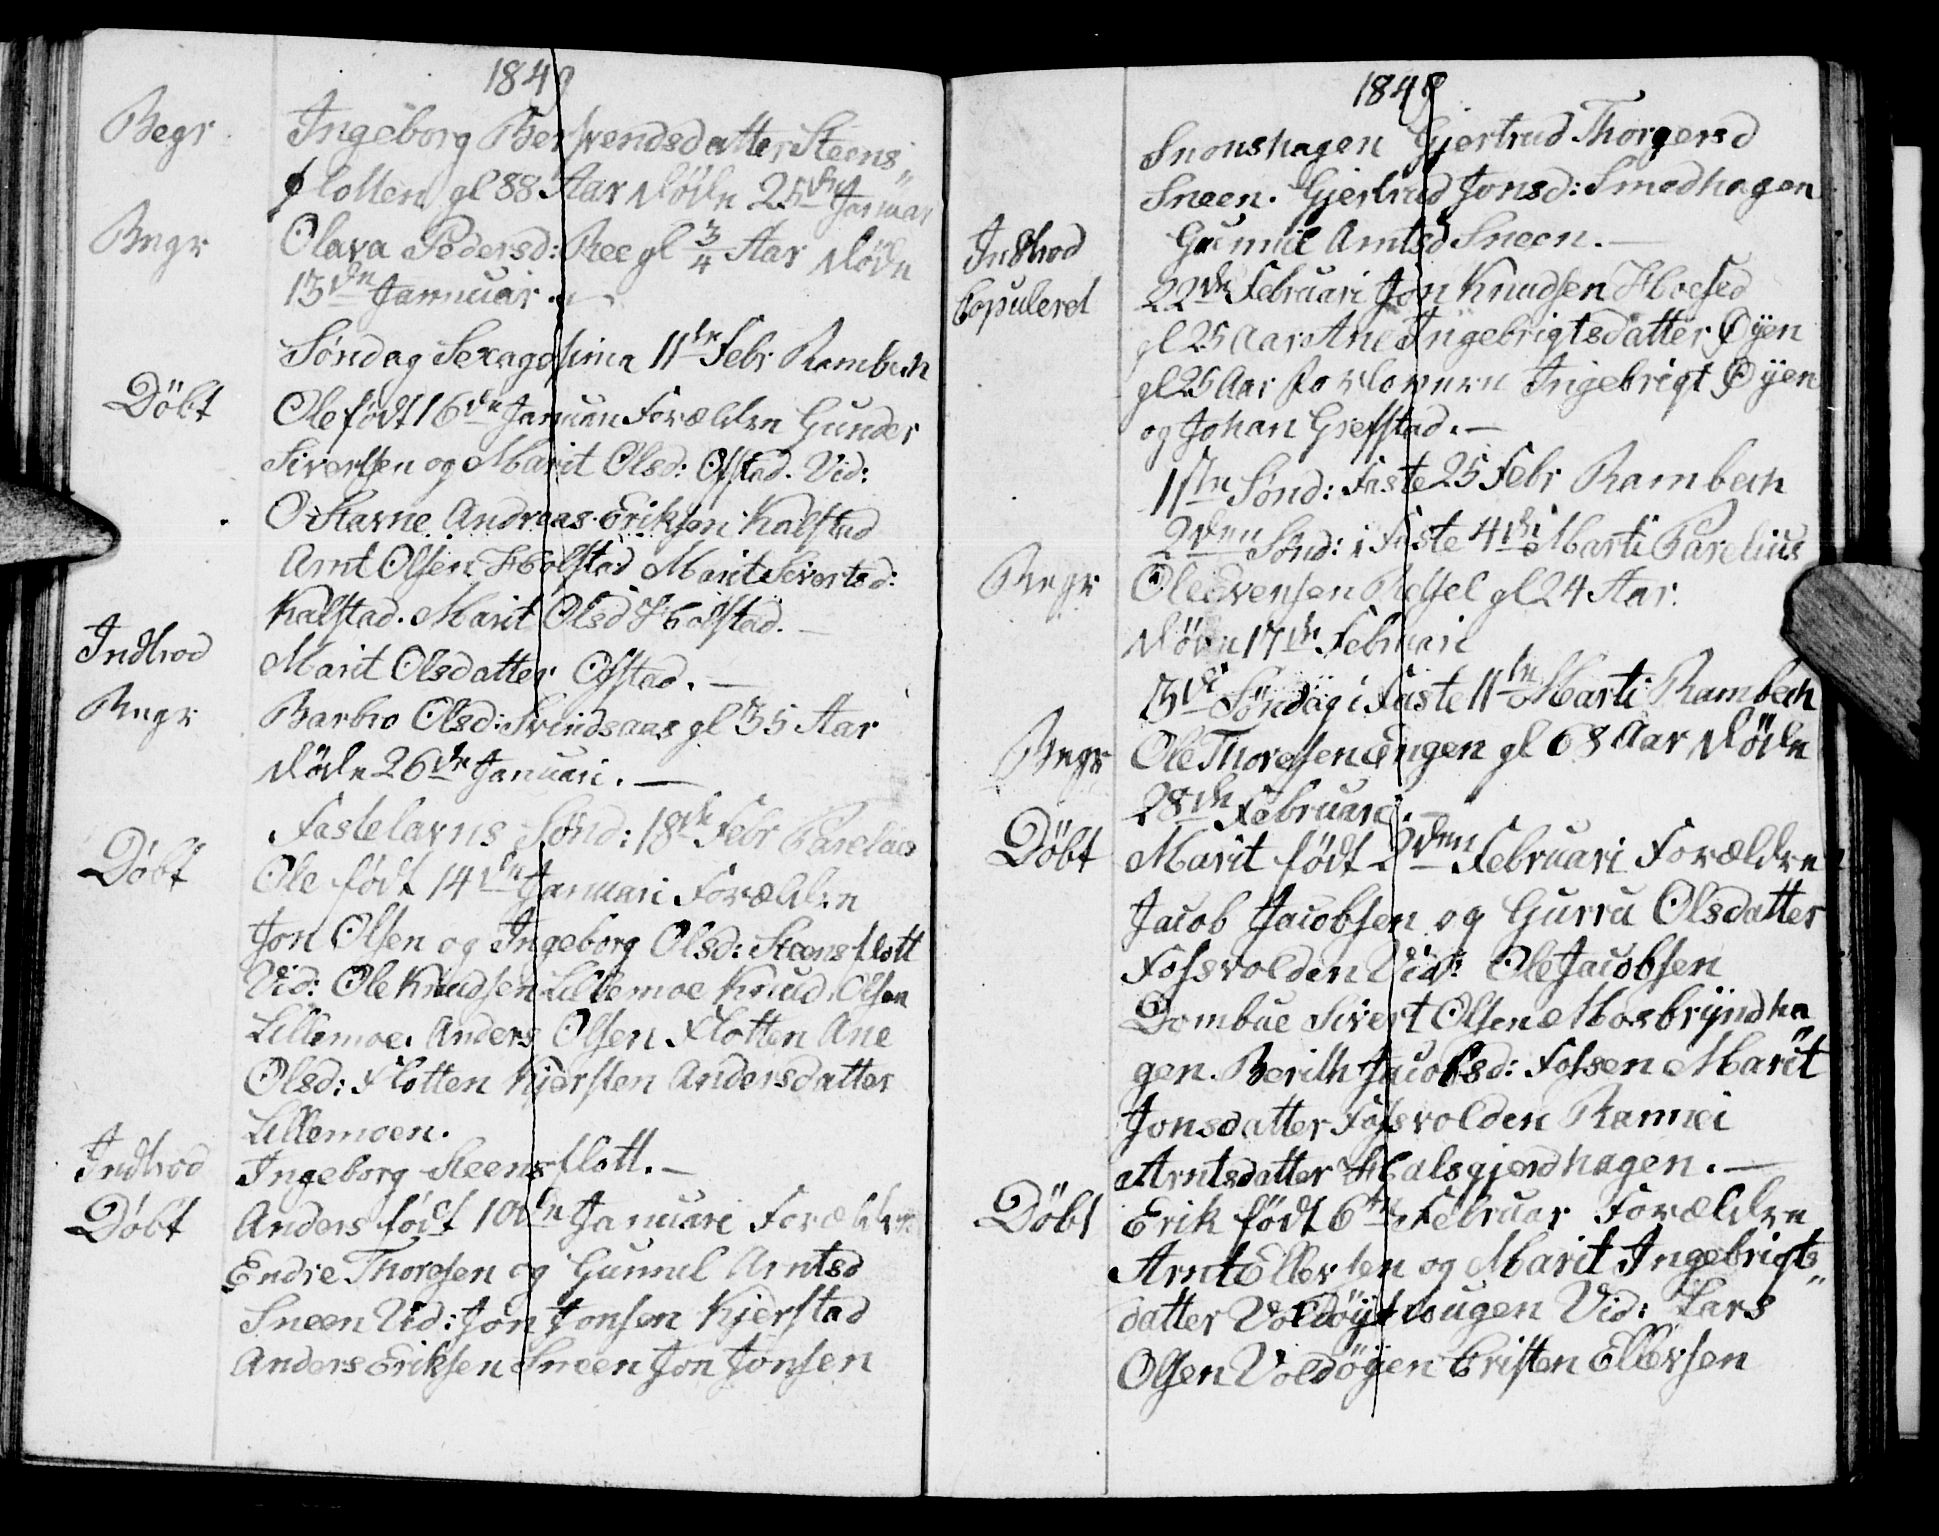 1849
Begr Ingeborg Berhvendsdatter Steens"
flotten gl 88 Aar döde 25de Januar
Begr Olava Pedersd: Ree gl 3/4 Aar döde
13de Januar. —
Søndag Sexagesima 11te Febr Rambech
Döbt Ole födt 16de Januari Forældre Gunder
Sivertsen og Marit Olsd: Ofstad. Vid:
O Stavne Andreas Eriksen Kalstad
Arnt Olsen Holstad Marit Sivertsd:
Kalstad. Marit Olsd Holstad. —
Indtrod Marit Olsdatter Ofstad. —
Begr Barbro Olsd: Svindsaas gl 35 Aar
döde 26de Januari. —
Fastelavns Sønd: 18de Febr Parelius
Döbt Ole født 14de Januari Forældre
Jon Olsen og Ingeborg Olsd: Steensflott
Vid: Ole Knudsen Lillemoe Knud Olsen
Lillemoe. Anders Olsen Flotten Ane
Olsd: Flotten Kjersten Andersdatter
Lillemoen.
Indtrod Ingeborg Steensflott. —
Döbt Anders født 10de Januari Forældre
Endre Thoresen og Gunnil Arntsd
Sneen Vid: Jon Jonsen Kjerstad
Anders Eriksen Sneen Jon Jonsen
1849
Snonshagen Gjertrud Thorgersd
Sneen. Gjertrud Jonsd: Smedhagen
Indtrod Gunnil Arntsd Sneen. —
Copuleret 22de Februari Jon Knudsen Hoesed
gl 25 Aar Ane Ingebrigtsdatter Øyen
gl 25 Aar Forlovere Ingebrigt Øyen
og Johan Grefstad. —
1ste Sønd: Faste 25 Febr Rambech
2den Sønd: i Faste 4de Marti Parelius
Begr Ole Svensen Refsel gl 24 Aar.
døde 17de Februari
3de Søndag i Faste 11te Marti Rambech
Begr Ole Thoresen Engen gl 68 Aar døde
28de Februari. —
Döbt Marit født 2den Februari Forældre
Jacob Jacobsen og Gurru Olsdatter
Fossvolden Vid: Ole Jacobsen
Dombue Sivert Olsen Mosbryndha
gen. Berith Jacobsd: Fossen Marit
Jonsdatter Fossvolden Rannei
Arntsdatter Halsgjerdhagen. —
Döbt Erik født 6te Februar Forældre
Arnt Ellevsen og Marit Ingebrigts"
datter Voldøyhougen Vid: Lars
Olsen Voldøyen Cristen Ellevsen